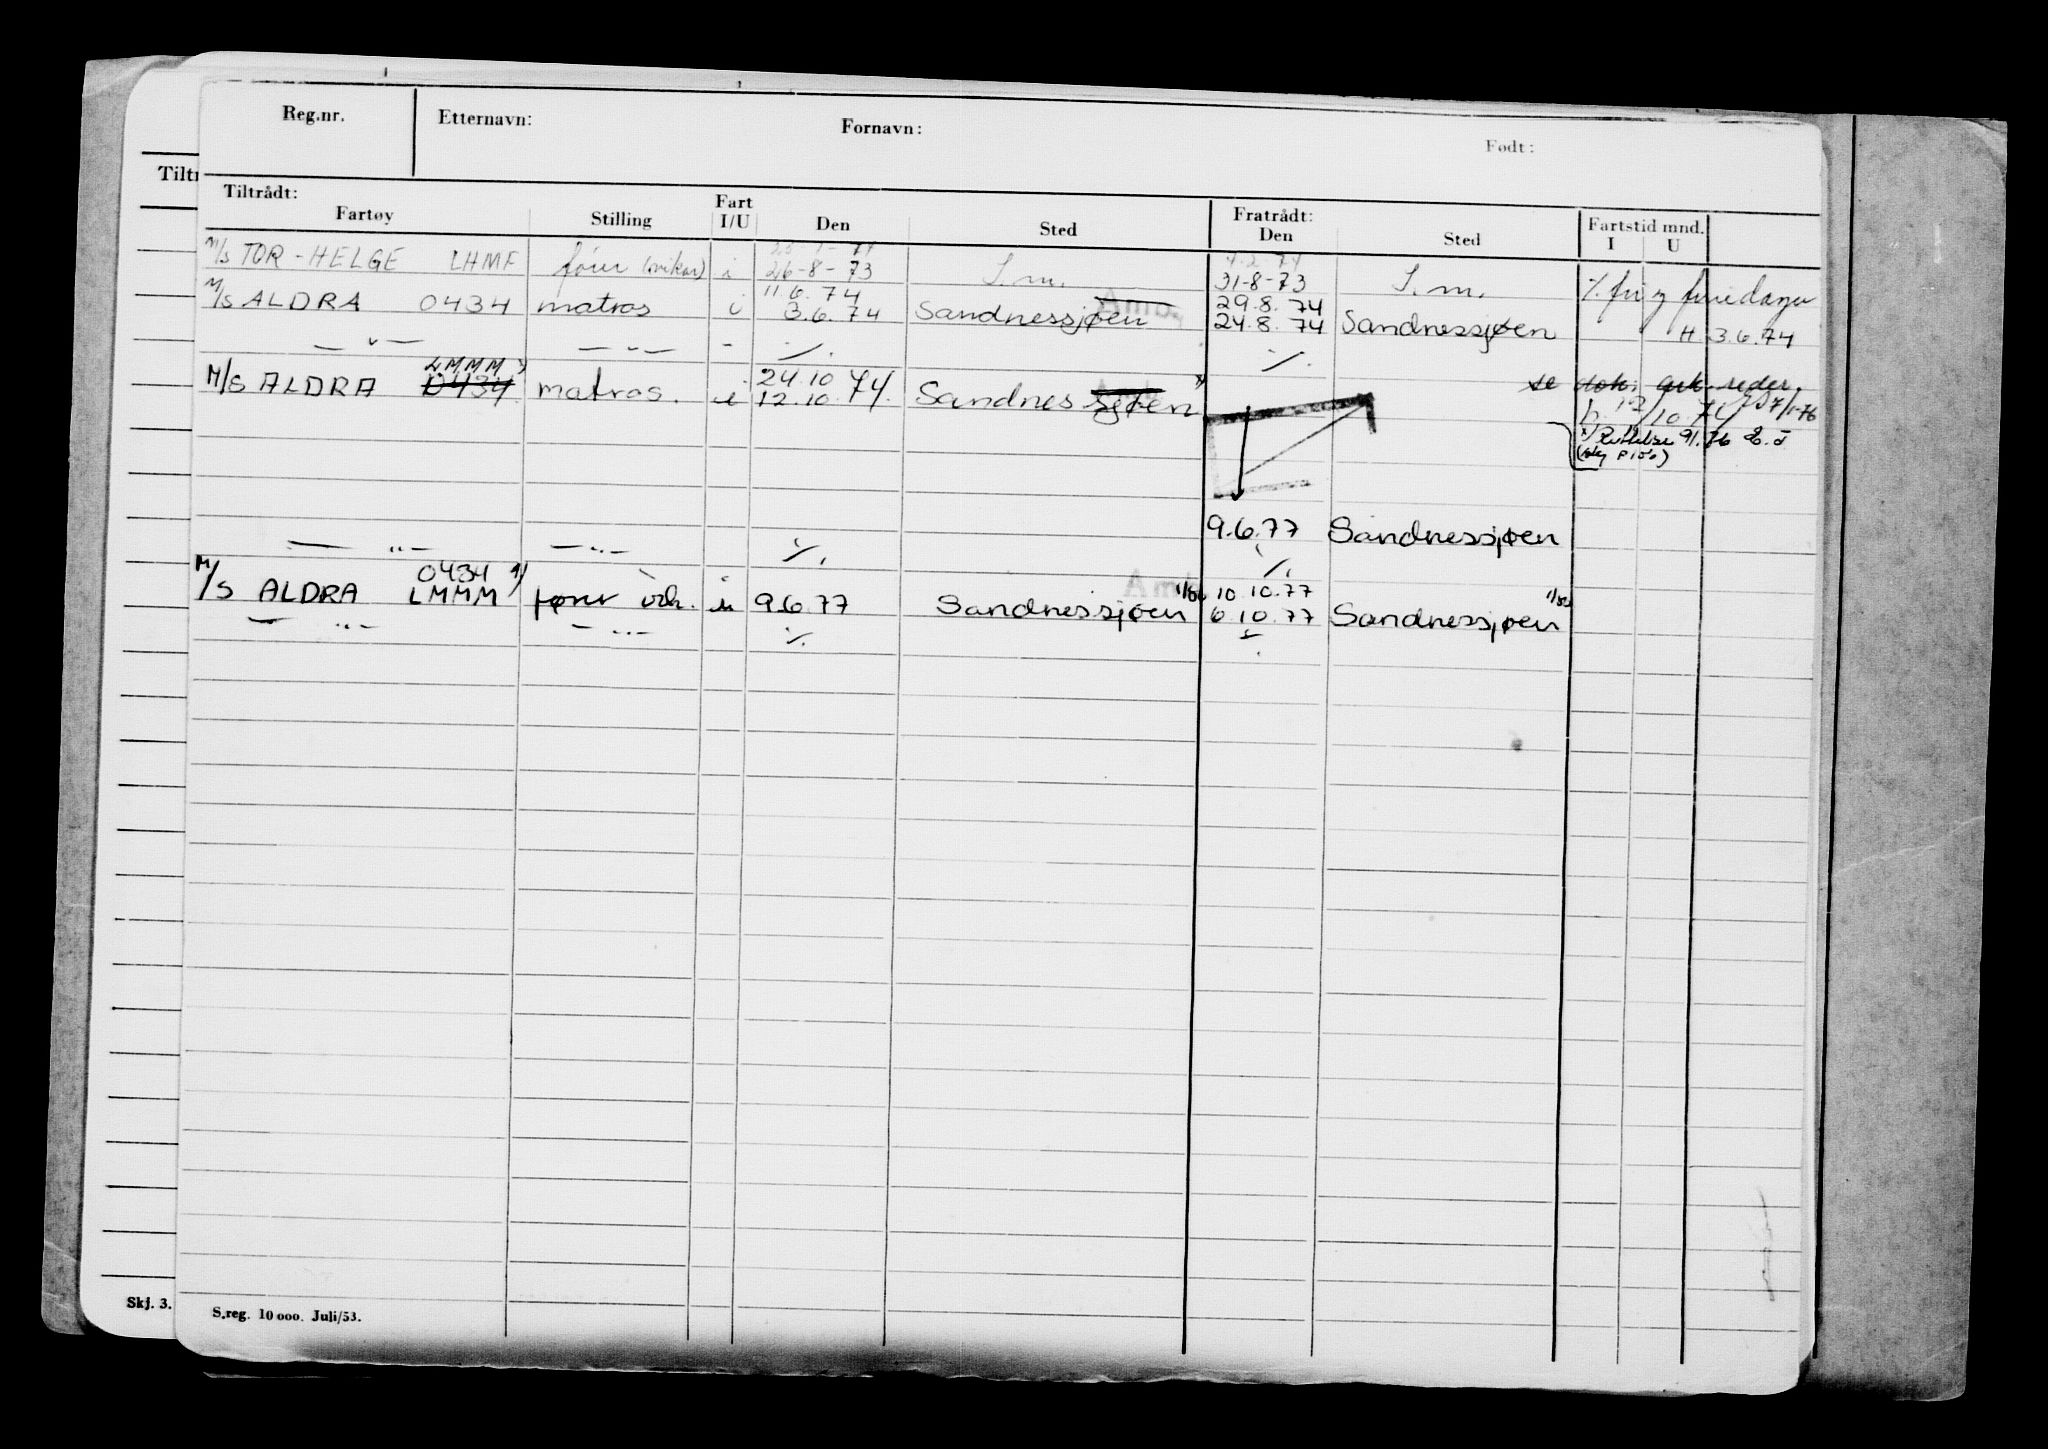 Reg.nr. Etternavn: Fornavn: Født:
Tiltr
Tiltrådt: Fratrådt: Fartstid mnd.
Fartøy Stilling Fart I/U Den Sted Den Sted I U
M/S TOR-HELGE LHMF fører (vikar) i 26-8-73 S.m. 31-8-73 S.m. % fri og feriedager
11.6.74 29.8.74
M/S ALDRA 0434 matros i 3.6.74 Sandnessjøen 24.8.74 Sandnessjøen H. 3.6.74
— " — — " — - ./. ./.
LMMM x) 24.10
M/S ALDRA 0434 matros. i 12.10.74. Sandnessjøen x) se dok. ark. reder.
h. 12/10.74 7/1-76
x) Rettelse 9/1.76
9.6.77 Sandnessjøen
— " — — " — ./. ./.
0434 10.10.77
M/S ALDRA LMMM fører i 9.6.77 Sandnessjøen 6.10.77 Sandnessjøen
— " — — " — ./. ./.
Skj. 3.
S.reg. 10 000. Juli/53.